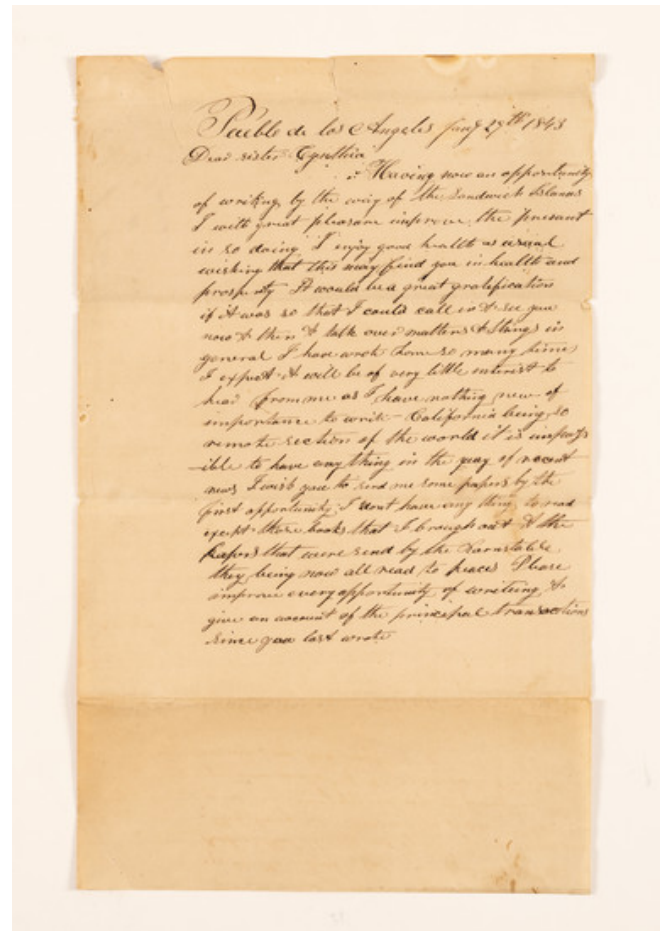 Pueblo de los Angeles Jany 29th 1843
Dear sister Cynthia
Having now an opportunity
of writing by the way of the Sandwich Islands
I with great pleasure improve the presant
in so doing I enjoy good health as usual
wishing that this may find you in health and
prosperity It would be a great gratification
if it was so that I could call in & see you
now & then & talk over matters & things in
general I have wrote home so many times
I expect it will be of very little interest to
hear from me as I have nothing new of
importance to write - California being so
remote section of the world it is imposs
-ible to have any thing in the way of recent
news I wish you to send me some papers by the
first opportunity I dont have any thing to read
except those books that I brough out & the
papers that were send by the Barnstable
they being now all read to peaces Please
improve every opportunity of writeing &
give an account of the principal transactions
since you last wrote